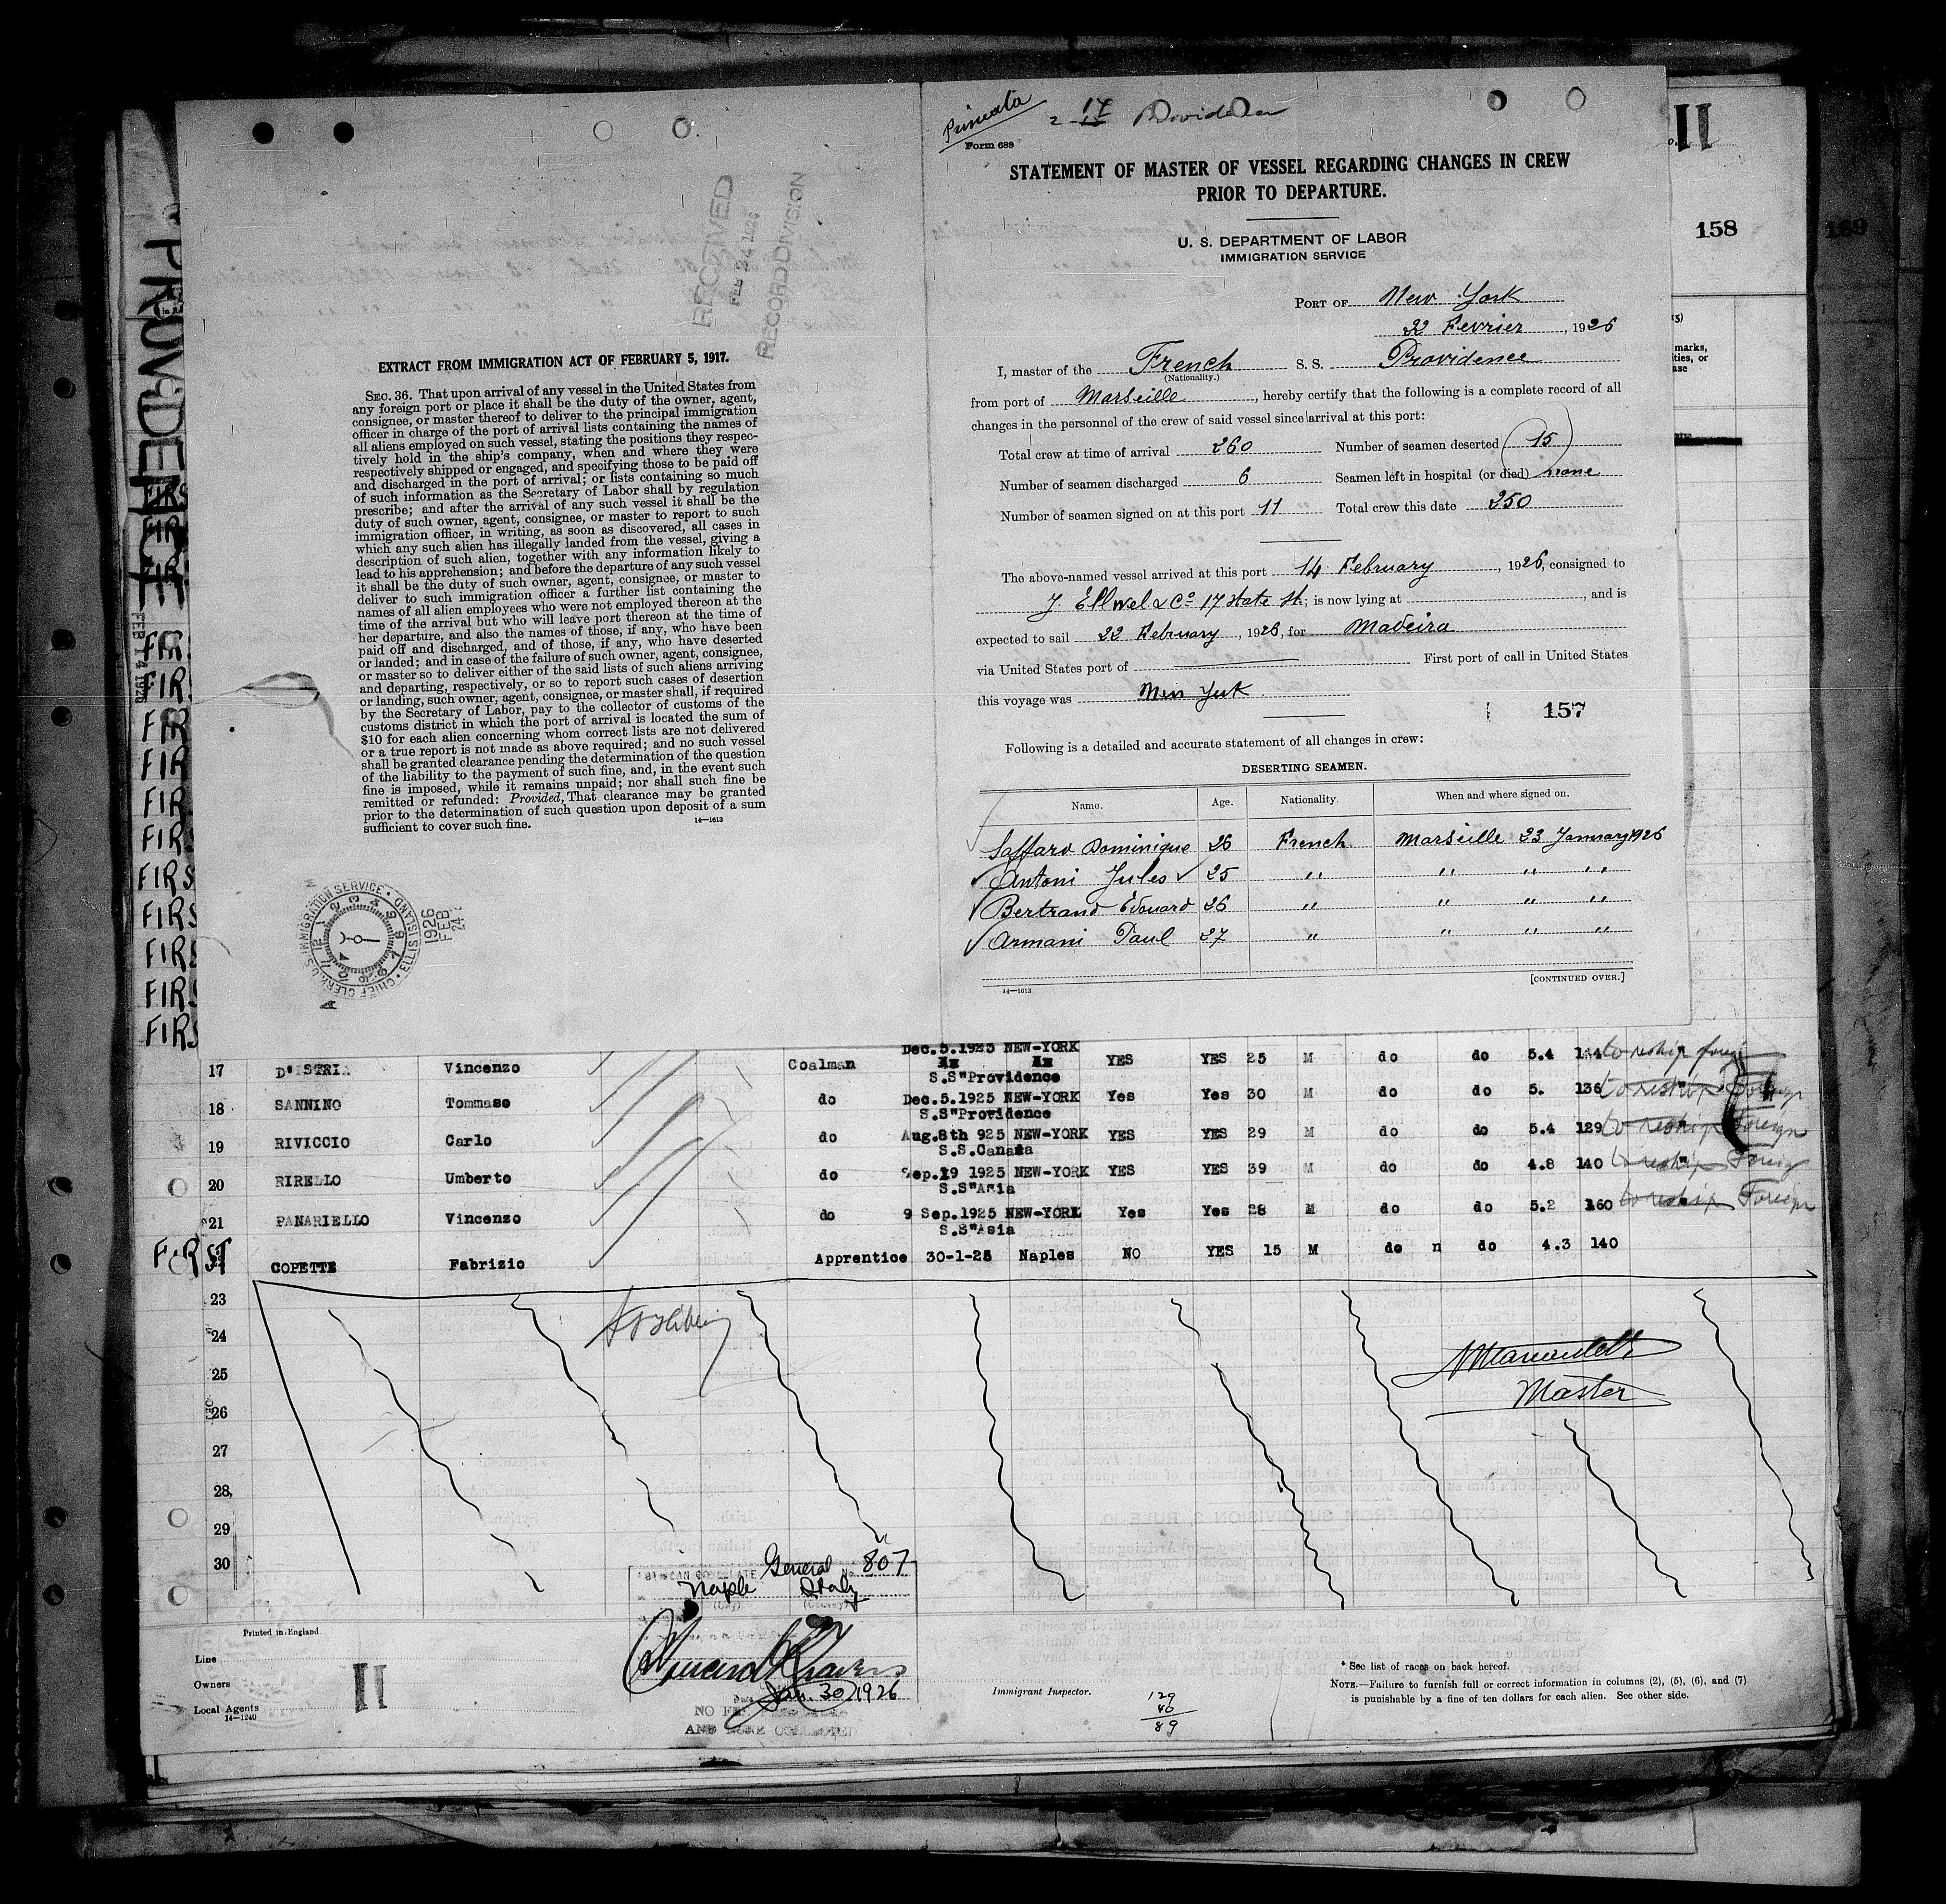 PROVIDENCE
FEB 14 1926
RECEIVED
FEB 24 1926
RECORD DIVISION
EXTRACT FROM IMMIGRATION ACT OF FEBRUARY 5, 1917.
SEC. 36. That upon arrival of any vessel in the United States from
any foreign port or place it shall be the duty of the owner, agent,
consignee, or master thereof to deliver to the principal immigration
officer in charge of the port of arrival lists containing the names of
all aliens employed on such vessel, stating the positions they respec-
tively hold in the ship's company, when and where they were
respectively shipped or engaged, and specifying those to be paid off
and discharged in the port of arrival; or lists containing so much
of such information as the Secretary of Labor shall by regulation
prescribe; and after the arrival of any such vessel it shall be the
duty of such owner, agent, consignee, or master to report to such
immigration officer, in writing, as soon as discovered, all cases in
which any such alien has illegally landed from the vessel, giving a
description of such alien, together with any information likely to
lead to his apprehension; and before the departure of any such vessel
it shall be the duty of such owner, agent, consignee, or master to
deliver to such immigration officer a further list containing the
names of all alien employees who were not employed thereon at the
time of the arrival but who will leave port thereon at the time of
her departure, and also the names of those, if any, who have been
paid off and discharged, and of those, if any, who have deserted
or landed; and in case of the failure of such owner, agent, consignee,
or master so to deliver either of the said lists of such aliens arriving
and departing, respectively, or so to report such cases of desertion
or landing, such owner, agent, consignee, or master shall, if required
by the Secretary of Labor, pay to the collector of customs of the
customs district in which the port of arrival is located the sum of
$10 for each alien concerning whom correct lists are not delivered
or a true report is not made as above required; and no such vessel
shall be granted clearance pending the determination of the question
of the liability to the payment of such fine, and, in the event such
fine is imposed, while it remains unpaid; nor shall such fine be
remitted or refunded: Provided, That clearance may be granted
prior to the determination of such question upon deposit of a sum
sufficient to cover such fine.
14—1613
CHIEF CLERK, U.S. IMMIGRATION SERVICE • ELLIS ISLAND
1926
FEB
24
2 17 Providence
Form 689
STATEMENT OF MASTER OF VESSEL REGARDING CHANGES IN CREW
PRIOR TO DEPARTURE.
U. S. DEPARTMENT OF LABOR
IMMIGRATION SERVICE
PORT OF New York
22 Fevrier, 1926
I, master of the French S. S. Providence
(Nationality.)
from port of Marseille, hereby certify that the following is a complete record of all
changes in the personnel of the crew of said vessel since arrival at this port:
Total crew at time of arrival 260 Number of seamen deserted 15
Number of seamen discharged 6 Seamen left in hospital (or died) none
Number of seamen signed on at this port 11 Total crew this date 250
The above-named vessel arrived at this port 14 February, 1926, consigned to
J. Ellwel & Co 17 State St.; is now lying at , and is
expected to sail 22 February, 1926, for Madeira
via United States port of First port of call in United States
this voyage was New York
157
Following is a detailed and accurate statement of all changes in crew:
DESERTING SEAMEN.
Name. Age. Nationality. When and where signed on.
Saffaro Dominique 26 French Marseille 23 January 1926
Antoni Jules 25 " " " "
Bertrand Edouard 26 " " " "
Armani Paul 27 " " " "
[CONTINUED OVER.]
14—1613
11
158
169
17 D'ISTRIA Vincenzo Coalman Dec.5.1925 NEW-YORK YES YES 25 M do do 5.4 144 to reship foreign
S.S"Providence
18 SANNINO Tommaso do Dec.5.1925 NEW-YORK Yes Yes 30 M do do 5. 136 to reship Foreign
S.S"Providence
19 RIVICCIO Carlo do Aug.8th 925 NEW-YORK YES YES 29 M do do 5.4 129 to reship Foreign
S.S.Canada
20 RIRELLO Umberto do Sep.19 1925 NEW-YORK YES YES 39 M do do 4.8 140 to reship Foreign
S.S"Asia
21 PANARIELLO Vincenzo do 9 Sep.1925 NEW-YORK Yes Yes 28 M do do 5.2 160 to reship Foreign
S.S"Asia
FIRST COPETTE Fabrizio Apprentice 30-1-26 Naples NO YES 15 M do n do 4.3 140
23
24
25
Master
26
27
28
29
30
General No. 807
Naples Italy
(City) (Country)
Jan. 30, 1926
NO FEE
AND NONE COLLECTED
Printed in England.
Line
Owners
Local Agents
14—1240
11
Immigrant Inspector.
129
40
89
* See list of races on back hereof.
NOTE.—Failure to furnish full or correct information in columns (2), (5), (6), and (7)
is punishable by a fine of ten dollars for each alien. See other side.